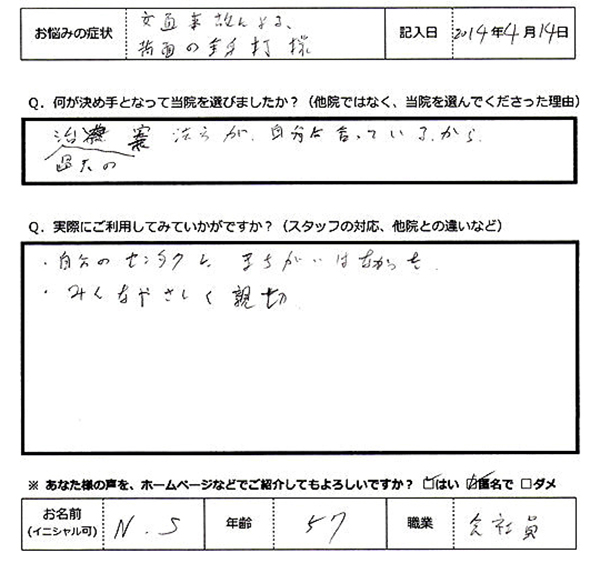 お悩みの症状 交通事故による、 記入日 2014年4月14日
背面の全身打様
Q．何が決め手となって当院を選びましたか？（他院ではなく、当院を選んでくださった理由）
治療 法が、自分に合っているから
過去の
Q．実際にご利用してみていかがですか？（スタッフの対応、他院との違いなど）
・自分のセンタクに まちがいはなかった
・みんなやさしく親切
※ あなた様の声を、ホームページなどでご紹介してもよろしいですか？ □はい □匿名で □ダメ
お名前 N.S 年齢 57 職業 会社員
(イニシャル可)